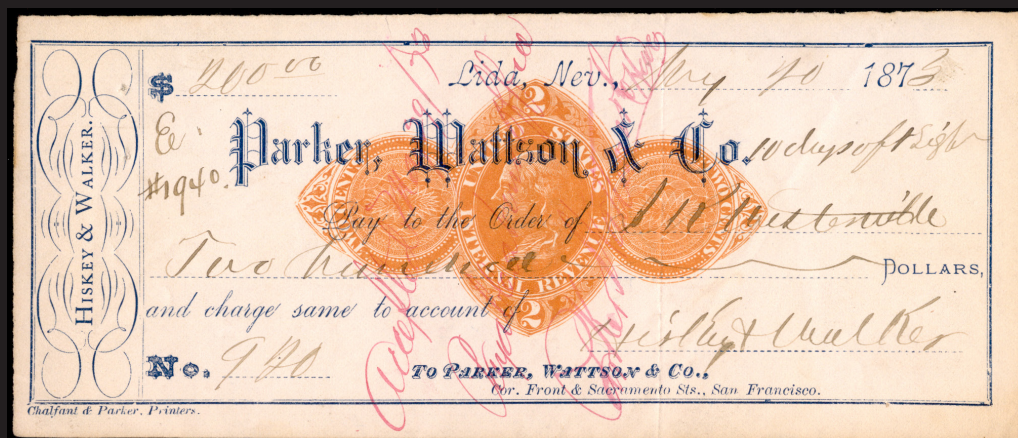 HISKEY & WALKER.
$ 200 00
Lida, Nev., May 20 1873
#1940.
Parker, Wattson & Co.
10 days aft sight
Pay to the Order of
Two hundred DOLLARS,
and charge same to account of
Hiskey & Walker
No. 920
TO PARKER, WATTSON & Co.,
Cor. Front & Sacramento Sts., San Francisco.
Chalfant & Parker, Printers.
2
UNITED STATES
INTERNAL REVENUE
2